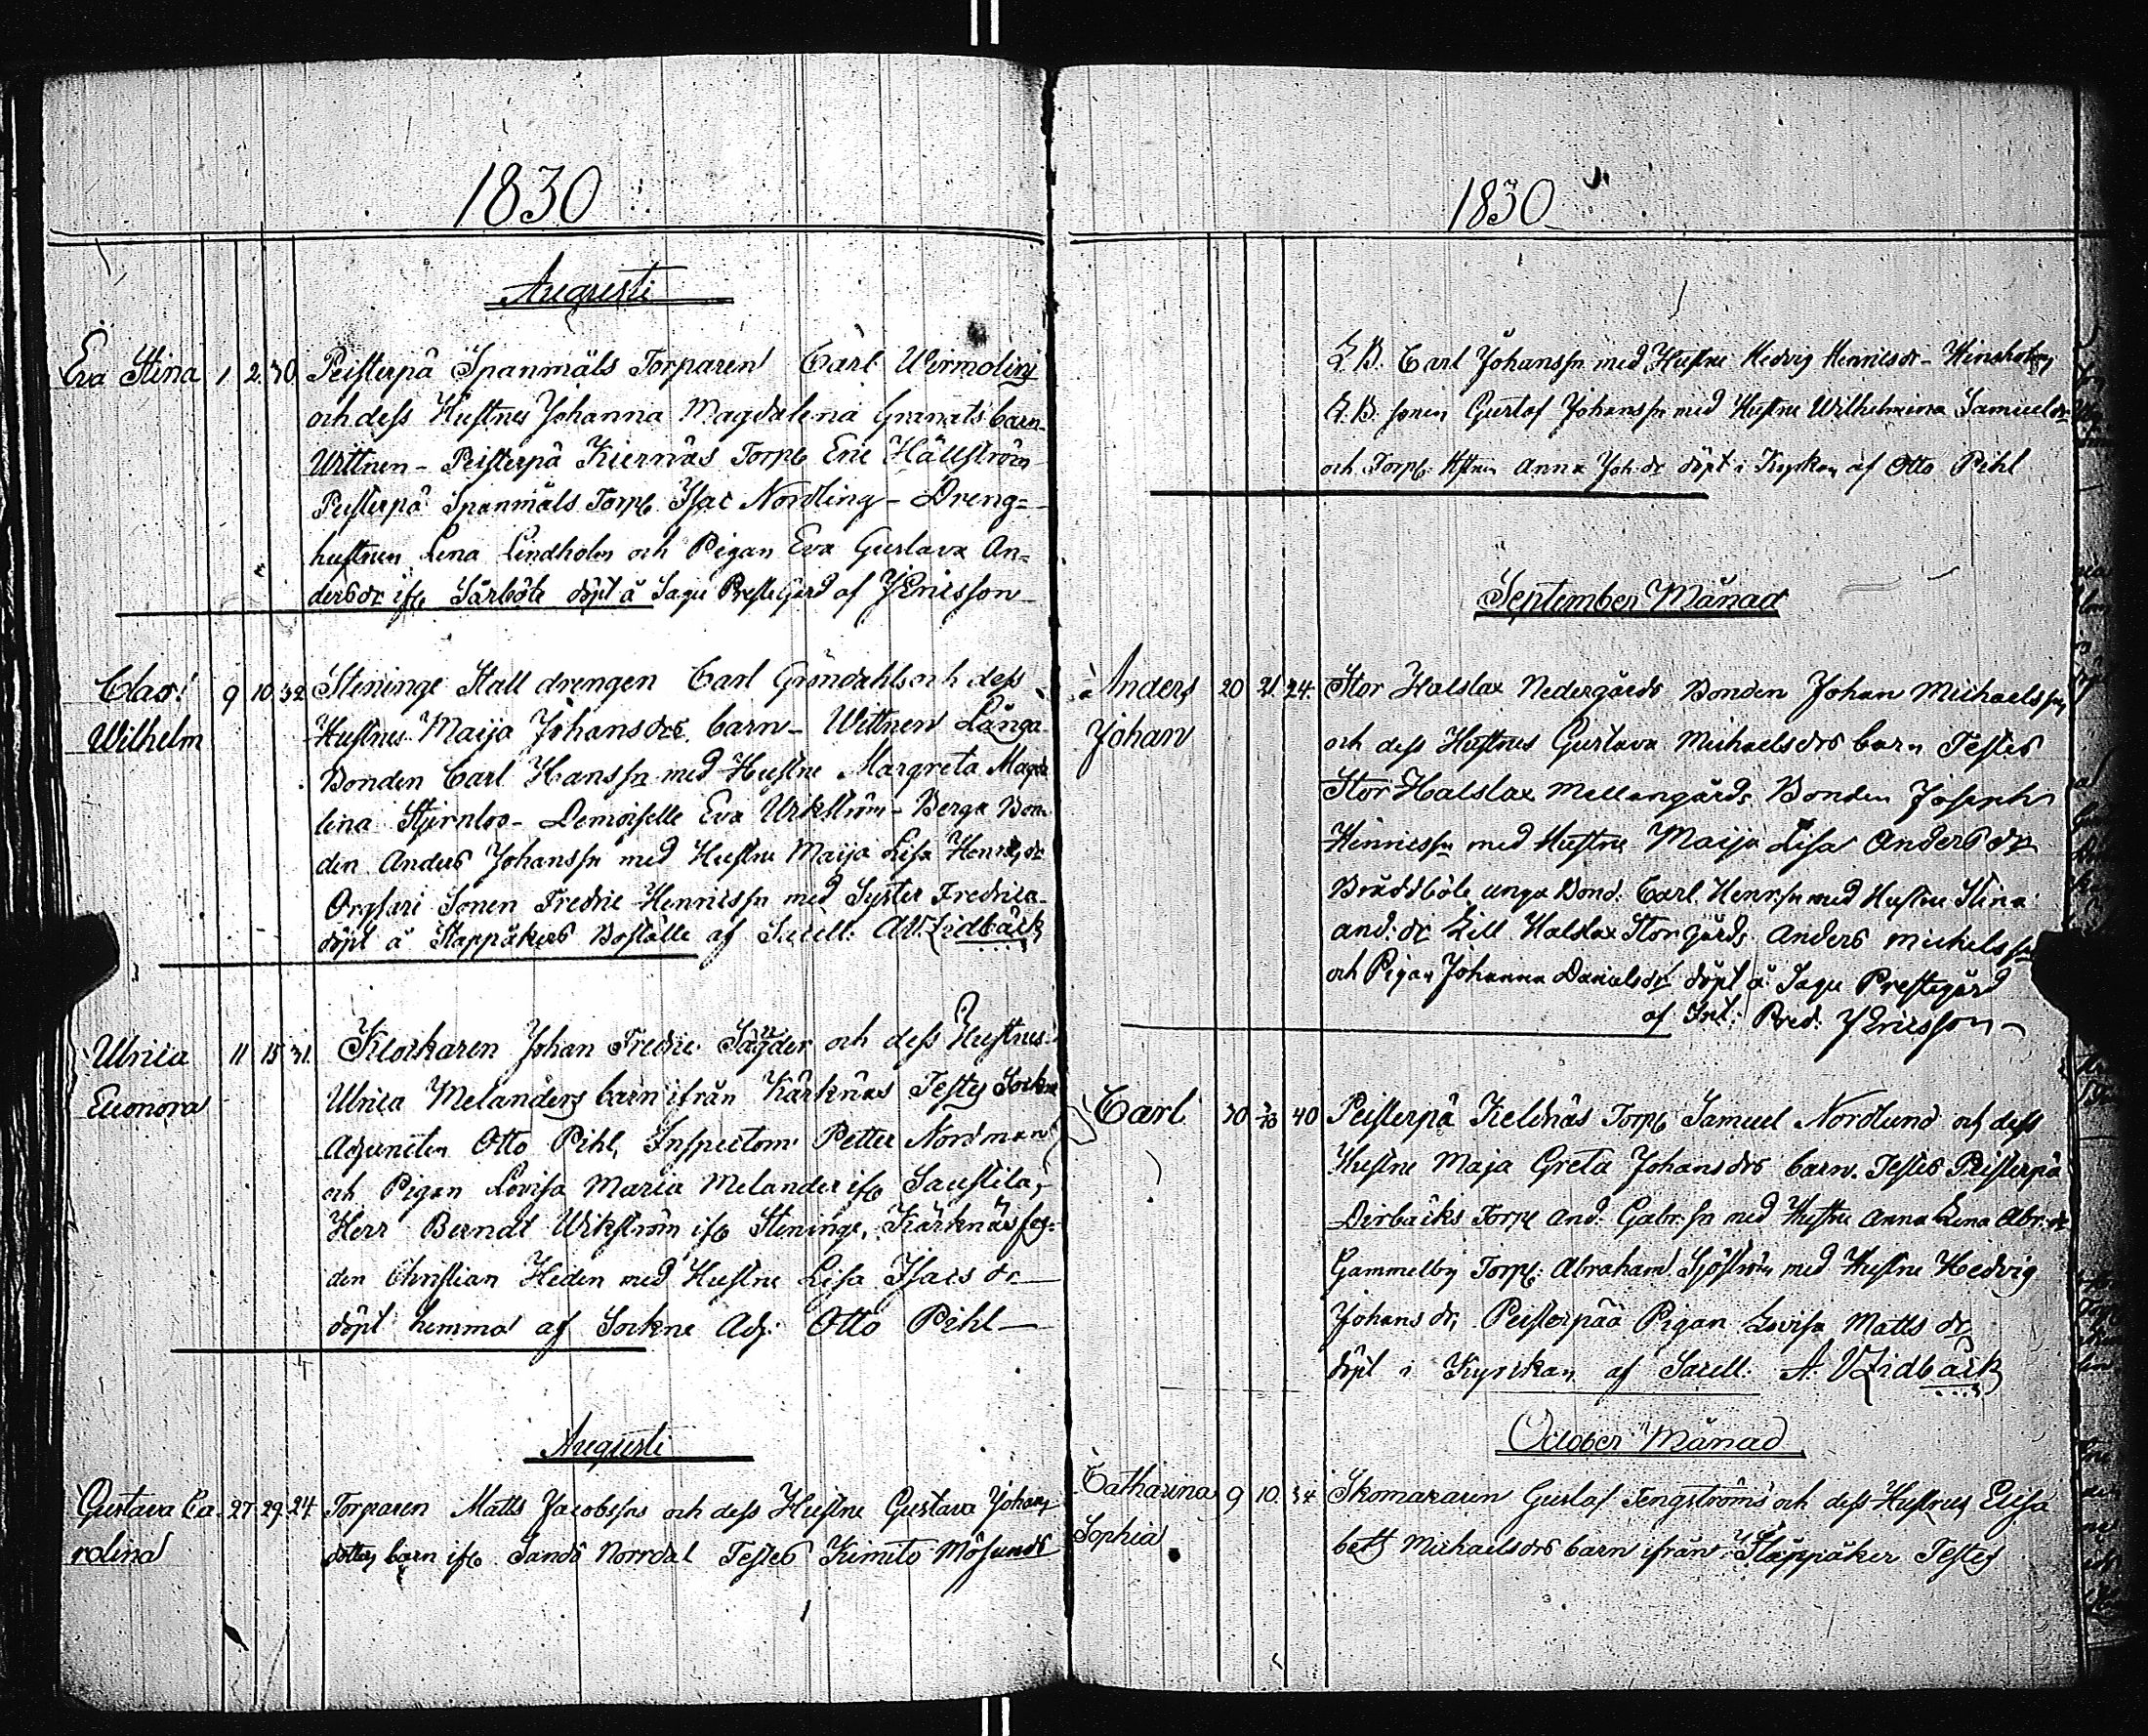 1830
Augusti
Eva Stina 1 2. 30. Peisterpå Spanmäls Torparen Carl Wermelins
och dess Hustrus Johanna Magdalena Granats barn
Wittnen - Peisterpå Kiernäs Torp: Eric Hällström
Peisterpå Spanmäls Torp: Isac Nordling - Dreng=
hustrun Lena Lindholm och Pigan Eva Gustava An=
dersdr ifr Särböle döpt å Sagu PrestGård af J Ericsson
Clas 9 10. 32. Steninge Stall drengen Carl Gröndahls och dess
Wilhelm Hustrus Maija Johansdrs barn - Wittnen Långa
Bonden Carl Hansson med Hustru Margreta Magda
lena Stjernloo - Demoiselle Eva Wikström - Berga Bon
den Anders Johansson med Hustru Maija Lisa Henricsdr
Sonen Fredric Henricsson med Syster Fredrica
döpt å Slappåkers Boställe af Sacell: A.V. Lidbäck
Ulrica 11 15 31. Klockaren Johan Fredric Sanders och dess Hustrus
Eleonora Ulrica Melanders barn ifrån Kärknäs Testes Sockne
Adjuncten Otto Pihl, Inspectorn Petter Nordman
och Pigan Lovisa Maria Melander ifr Saustila,
Herr Berndt Wikström ifr Steninge, Kärknäs fog=
den Christian Heden med Hustru Lisa Isacsdr
döpt hemma af Sockne Adj: Otto Pihl
Augusti
Gustava Ca 27. 29. 24 Torparen Matts Jacobssons och dess Hustru Gustava Johans
rolina dotters barn ifr Sandö Norrdal Testes Kimito Mösunds
1830
L. B. Carl Johansson med Hustru Hedvig Henricsdr -
L. B. sonen Gustaf Johansson med Hustru Wilhelmina Samuelsdr
och Torp: Hstrun Anna Joh: dr döpt i Kyrkan af Otto Pihl
September Månad
Anders 20 21. 24. Stor Halslax Nedergårds Bonden Johan Michaelsson
Johan och dess Hustrus Gustava Michaelsdrs barn Testes
Stor Halslax Mellangårds Bonden Joseph
Henricsson med Hustru Maija Lisa Anders dr
Bräddböle unga Bond: Carl Henr:sn med Hustru Stina
And: dr Lill Halslax Storgårds Anders Michelsson
och Pigan Johanna Danielsdr döpt å Sagu Prestegård
af Ext: Pred: J Ericsson
Carl 30 3/10 40 Peisterpå Keldnäs Torp: Samuel Nordlund och dess
Hustru Maja Greta Johansdrs barn. Testes Peisterpå
Dirbäcks Torp: And: Gabr:sn med Hustru Anna Lena Abr: dr
Gammelby Torp: Abraham Sjöström med Hustru Hedvig
Johans dr, Peisterpää Pigan Lovisa Matts dr
döpt i Kyrckan af Sacell: A. V Lidbäck
October Månad
Catharina 9 10. 34 Skomakaren Gustaf Tengströms och dess Hustrus Elisa
Sophia beth Michaelsdrs barn ifrån Slappåker Testes